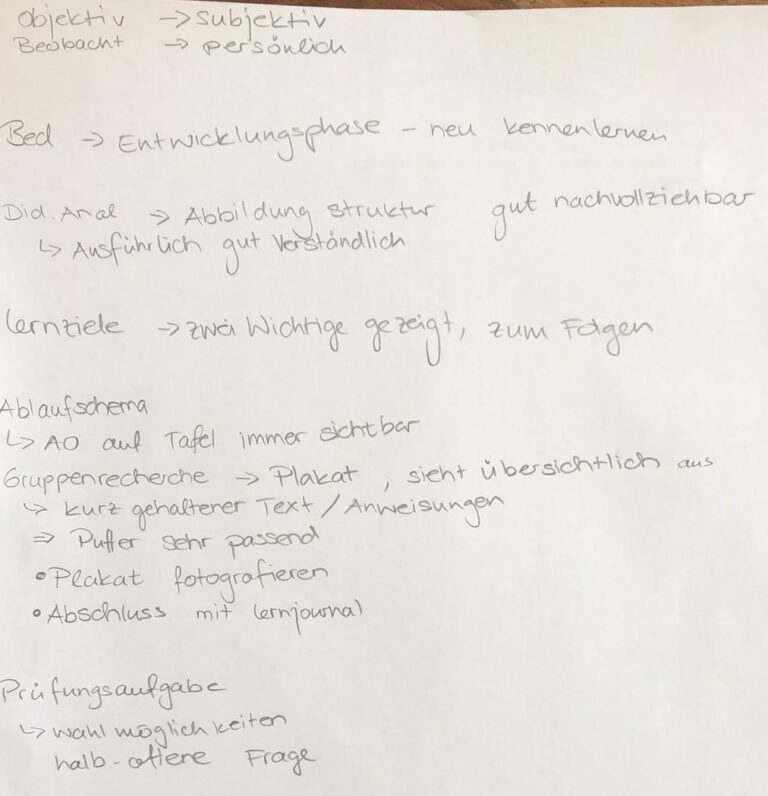 Objektiv → subjektiv
Beobacht → persönlich
Bed → Entwicklungsphase - neu kennenlernen
Did. Anal → Abbildung struktur gut nachvollziehbar
↳ Ausführlich gut verständlich
Lernziele → zwei Wichtige gezeigt, zum Folgen
Ablaufschema
↳ AO auf Tafel immer sichtbar
Gruppenrecherche → Plakat, sieht übersichtlich aus
↳ kurz gehaltener Text / Anweisungen
⇒ Puffer sehr passend
• Plakat fotografieren
• Abschluss mit Lernjournal
Prüfungsaufgabe
↳ wahlmöglichkeiten
halb-offene Frage